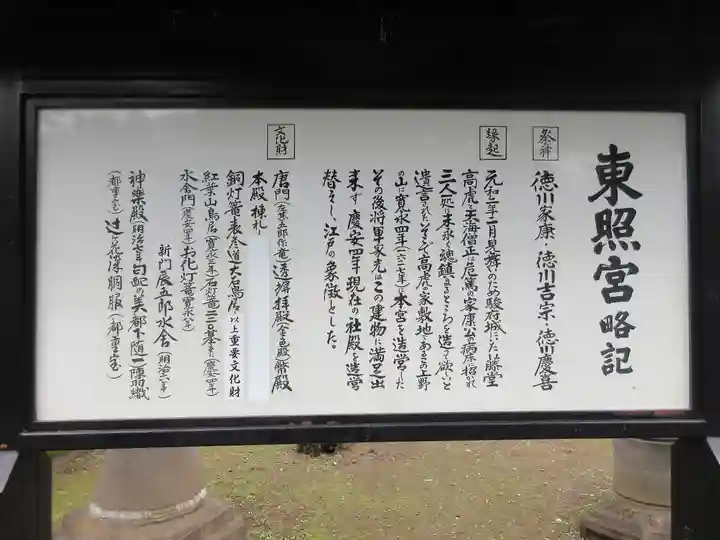 東照宮略記
祭神
徳川家康・徳川吉宗・徳川慶喜
縁起
元和二年二月見舞のため駿府城にいた藤堂
高虎と天海僧正は危篤の家康公の病床に招かれ
三人一処に末永く魂鎮まるところを造って欲しいと
遺言された。そこで高虎の家敷地であるこの上野
の山に寛永四年(一六二七年)に本宮を造営した
その後将軍家光はこの建物に満足出
来ず慶安四年現在の社殿を造営
替えし、江戸の象徴とした。
文化財
唐門(左甚五郎作竜)透塀拝殿(金色殿)幣殿
本殿棟札
銅灯篭表参道大石鳥居以上重要文化財
紅葉山鳥居(寛永三年)石灯篭二三〇基(慶安四年)
水舎門(慶安四年)お化灯篭(寛永八年)
新門辰五郎水舎(明治六年)
神楽殿(明治七年)勾配の美都下随一陣羽織
(都重宝)辻ヶ花染胴服(都重宝)